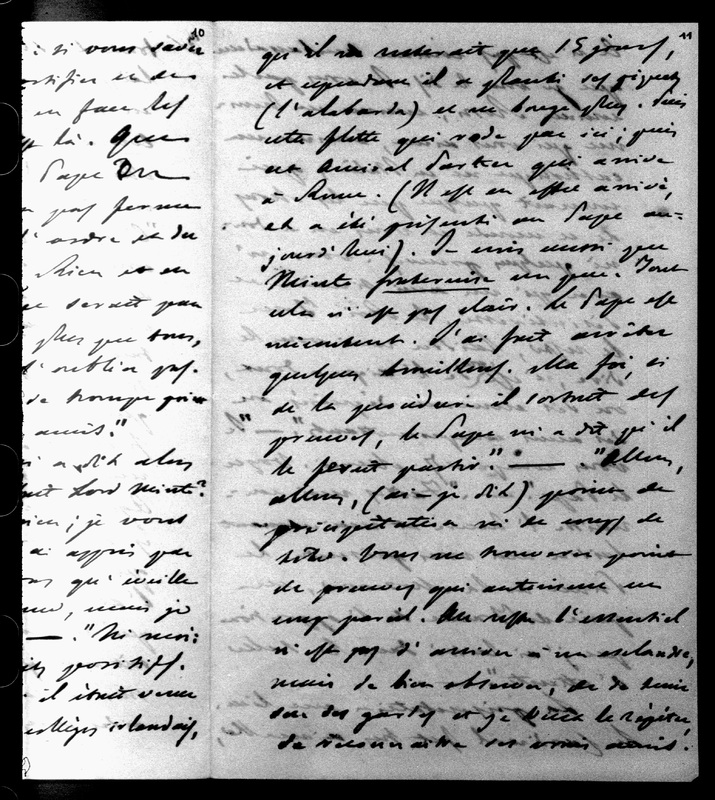 10
si vous saviez
fortifier et de
en face les
là. Que
Pape
pas fermer
l'ordre et du
Rien et en
serait pas
plus que tous,
l'oublia pas.
de trompe point
amis."
a dit alors
Lord Minto?
rien; je vous
ai appris que
qu'éveille
mais je
— ." Ni moi:
positifs.
il était venu
collèges irlandais,
11
qu'il ne resterait que 15 jours,
et cependant il a planté ses piquets
(l'alabarda) et ne bouge plus. Puis
cette flotte qui rode par ici; puis
cet Amiral Parker qui arrive
à Rome. (Il est en effet arrivé,
et a été présenté au Pape au-
jourd'hui). Je vois aussi que
Minto fraternise un peu. Tout
cela n'est pas clair. Le Pape est
mécontent. J'ai fait arrêter
quelques brouillons. Ma foi, si
de la procédure il sortait des
preuves, le Pape m'a dit qu'il
le ferait partir." — "Allons,
allons, (ai-je dit) point de
précipitation ni de coups de
tête. Vous ne trouverez point
de preuves qui autorisent un
coup pareil. Au reste l'essentiel
n'est pas d'arriver à un esclandre,
mais de bien observer, de se tenir
sur ses gardes et je dois le répéter,
de reconnaître ses vrais amis.